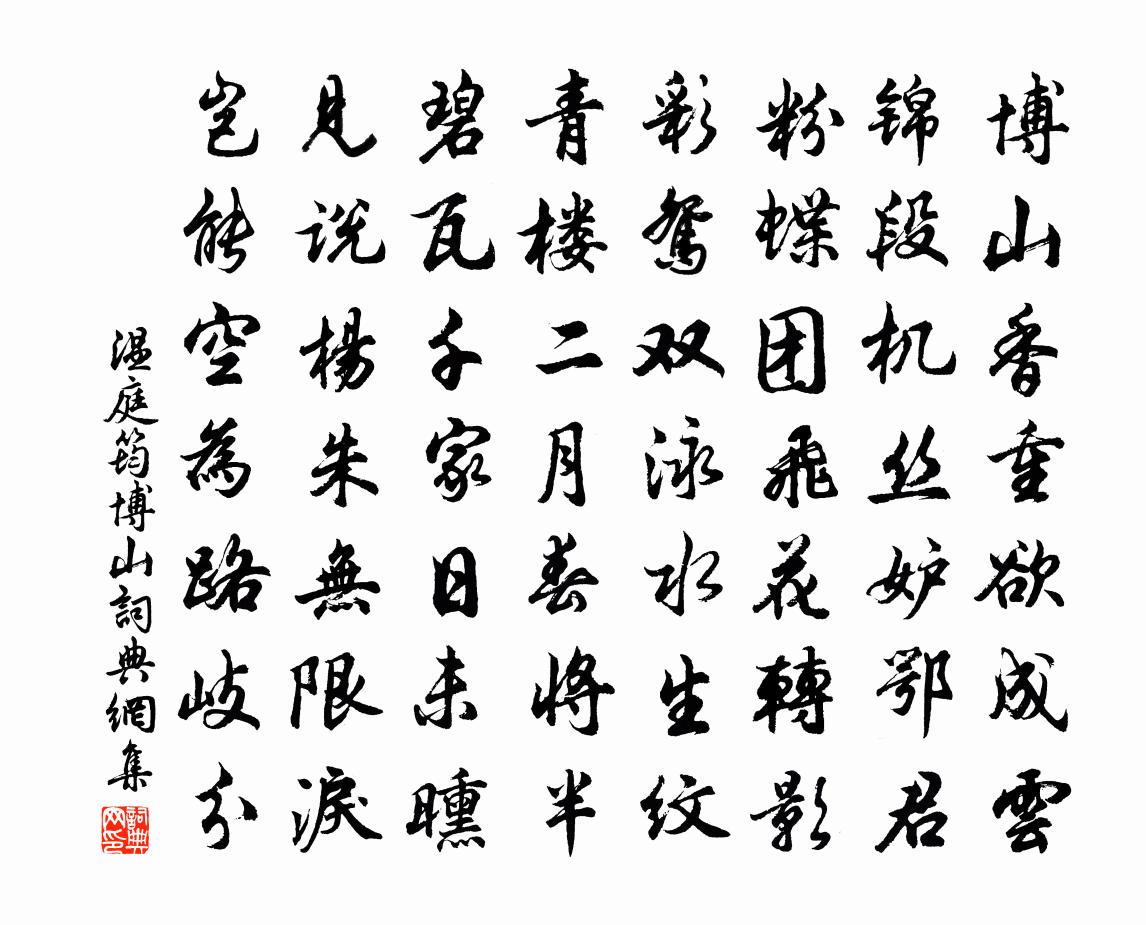 博山香重欲成雲
锦段机丝妒鄂君
粉蝶团飛花轉影
彩鴛双泳水生纹
青楼二月春將半
碧瓦千家日未曛
見说楊朱無限淚
岂能空為路岐分
温庭筠博山詞典網集
詞典网印